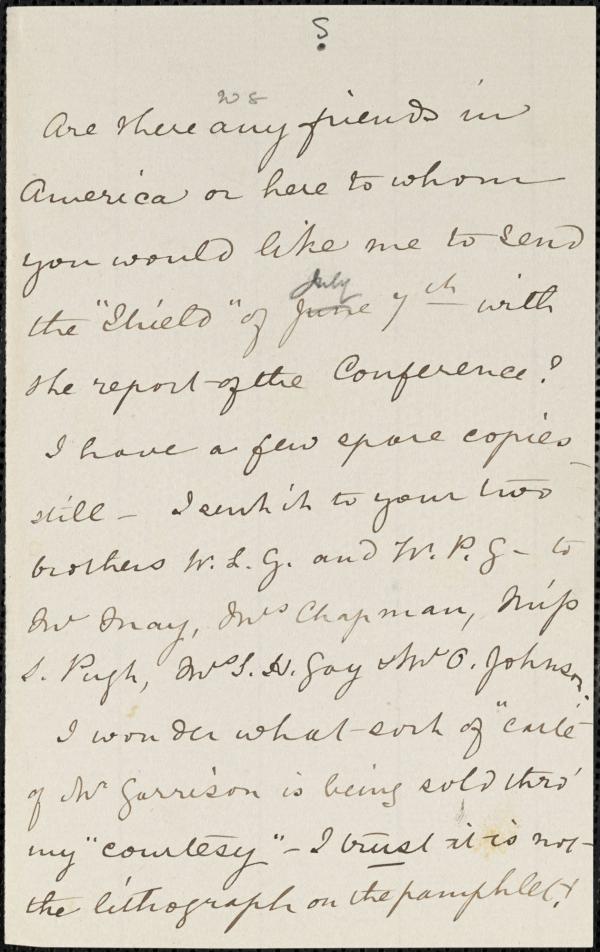 5
Are there any friends in
America or here to whom
you would like me to send
the "Shield" of June July 7th with
the report of the Conference?
I have a few spare copies
still - I sent it to your two
brothers W. L. G. and W. P. G - to
Mr May, Mrs Chapman, Miss
S. Pugh, Mrs S. H. Gay & Mr O. Johnson.
I wonder what sort of "carte"
of Mr Garrison is being sold thro'
my "courtesy" - I trust it is not
the lithograph on the pamphlet!